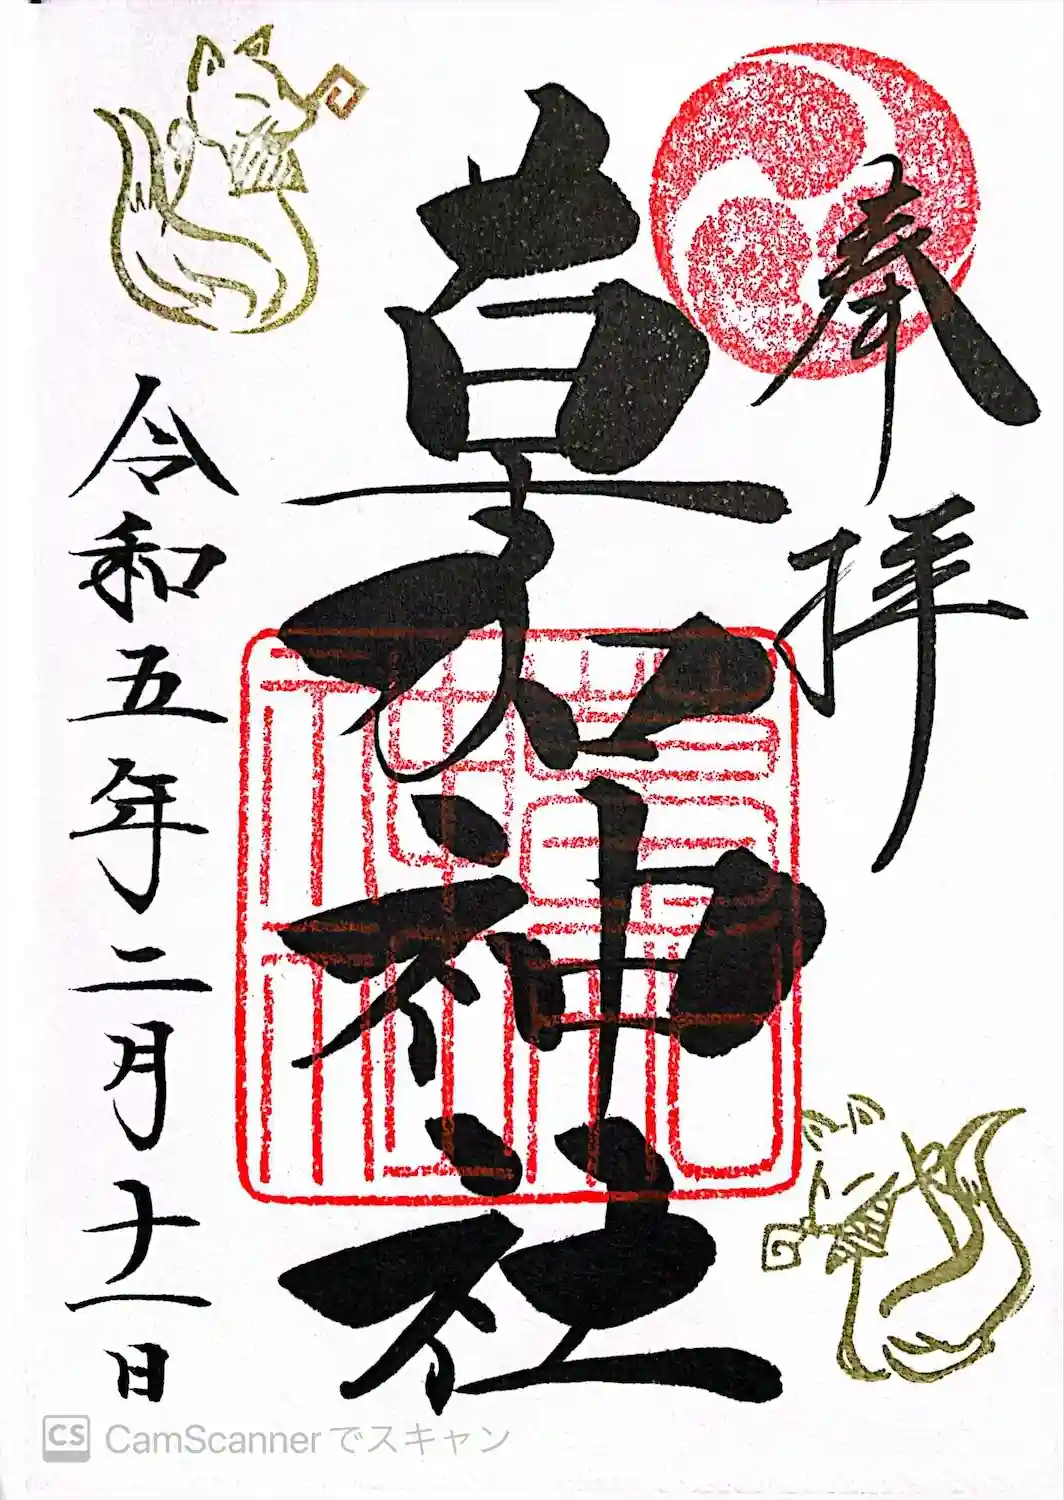 奉拝
神社
令和五年二月十一日
CS CamScannerでスキャン